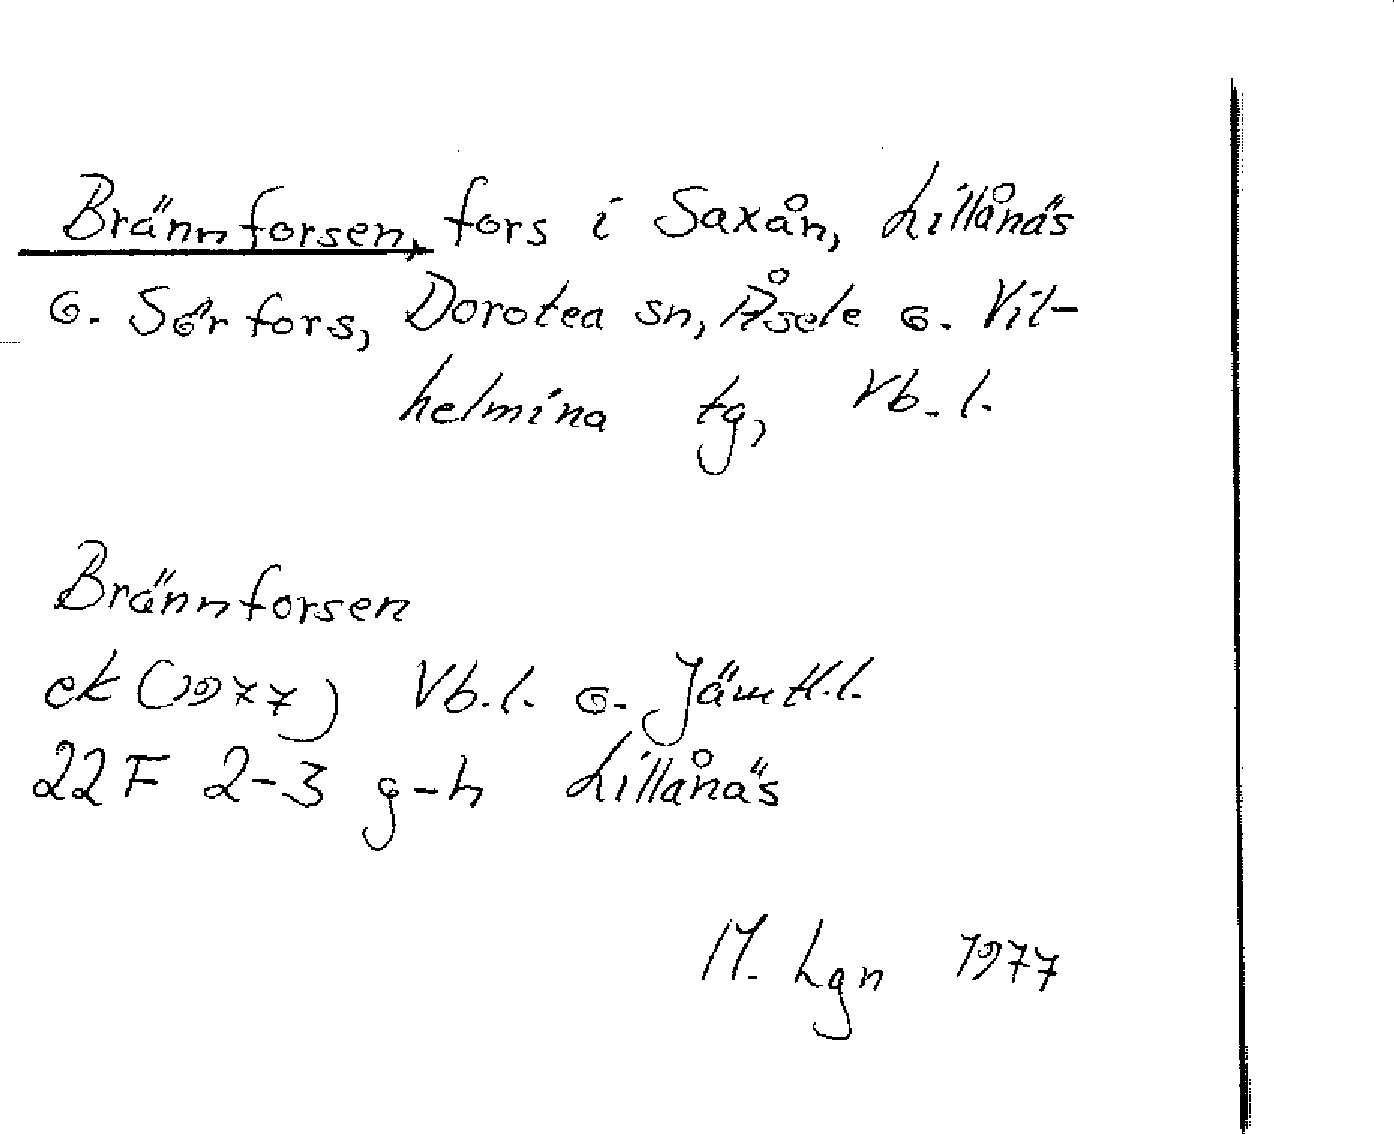 Brännforsen, fors i Saxån, Lillånäs
o. Sörfors, Dorotea sn, Åsele o. Vil-
helmina tg, Vb. l.
Brännforsen
ek (1977) Vb. l. o. Jämtl. l.
22 F 2-3 g-h Lillånäs
M. Lgn 1977